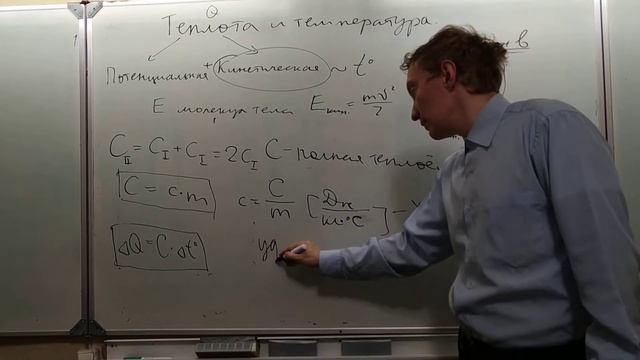 Q
Теплота и температура.
Потенциальная + Кинетическая ~ t°
E молекул тела E кин. = mv²/2
C_II = C_I + C_I = 2C_I C - полная теплоё
C = c·m c = C/m [Дж/кг·°C] -
ΔQ = C·Δt° уд